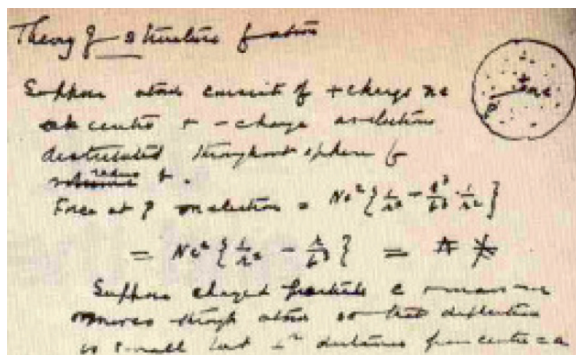 Theory of structure of atoms
Suppose atom consists of + charge ne
at centre + - charge as electrons
distributed throughout sphere of
radius b.
Force at P on electron = Ne² { 1/r² - r³/b³ · 1/r² }
= Ne² { 1/r² - r/b³ } =
Suppose charged particle e mass m
moves through atom so that deflection
is small and ⊥ʳ distance from centre = a
+ne
P